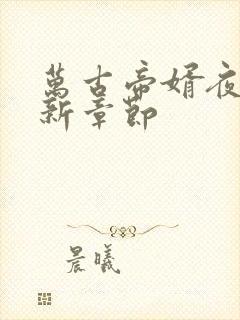 萬古帝婿夜
新章節
晨曦